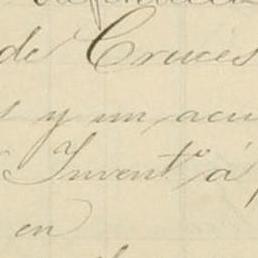 de Cruces
y un acu
Invent.º á
en